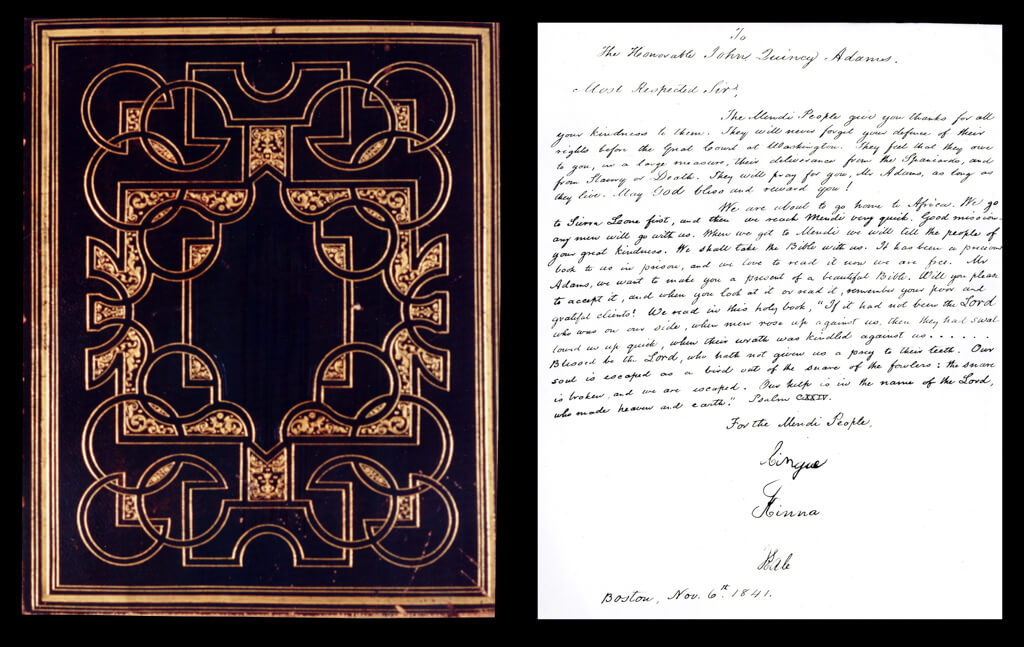 To
The Honorable John Quincy Adams.
Most Respected Sir,
The Mendi People give you thanks for all
your kindness to them. They will never forget your defence of their
rights before the Great Court at Washington. They feel that they owe
to you, in a large measure, their deliverance from the Spaniards, and
from Slavery or Death. They will pray for you, Mr Adams, as long as
they live. May God bless and reward you!
We are about to go home to Africa. We go
to Sierra Leone first, and then we reach Mendi very quick. Good mission-
ary men will go with us. When we get to Mendi we will tell the people of
your great kindness. We shall take the Bible with us. It has been a precious
book to us in prison, and we love to read it now we are free. Mr
Adams, we want to make you a present of a beautiful Bible. Will you please
to accept it, and when you look at it or read it, remember your poor and
grateful clients! We read in this holy book, "If it had not been the Lord
who was on our side, when men rose up against us, then they had swal-
lowed us up quick, when their wrath was kindled against us......
Blessed be the Lord, who hath not given us a prey to their teeth. Our
soul is escaped as a bird out of the snare of the fowlers: the snare
is broken, and we are escaped. Our help is in the name of the Lord,
who made heaven and earth." Psalm CXXIV.
For the Mendi People,
Cinque
Kinna
Kale
Boston, Nov. 6th. 1841.